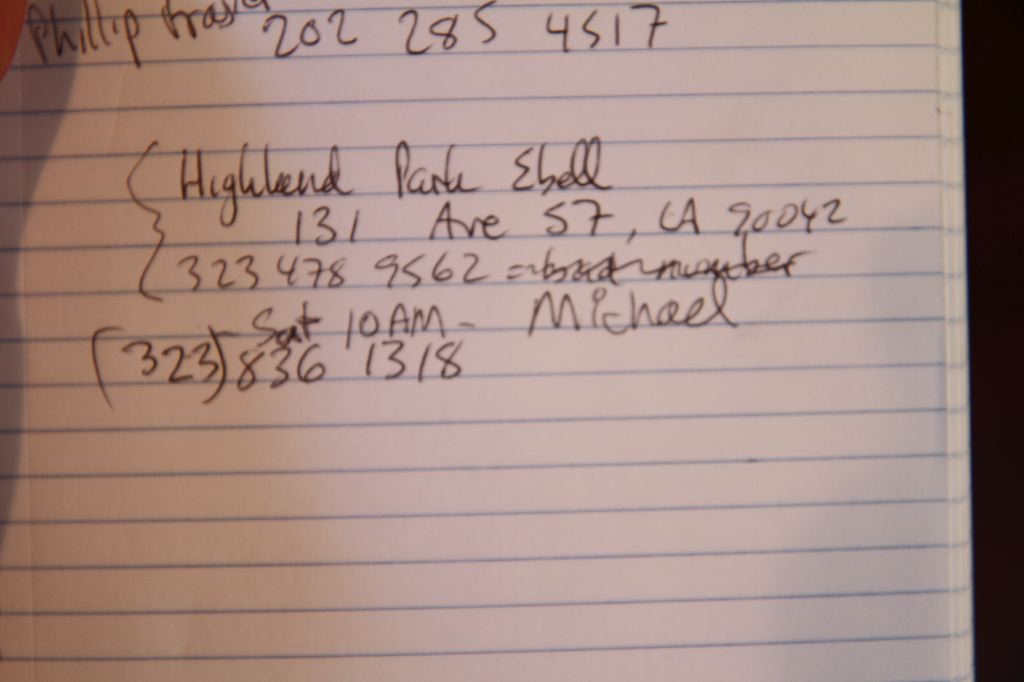 Phillip 202 285 4517
Highland Park Ebell
131 Ave 57, CA 90042
323 478 9562 = bad number
Sat 10AM - Michael
(323) 836 1318